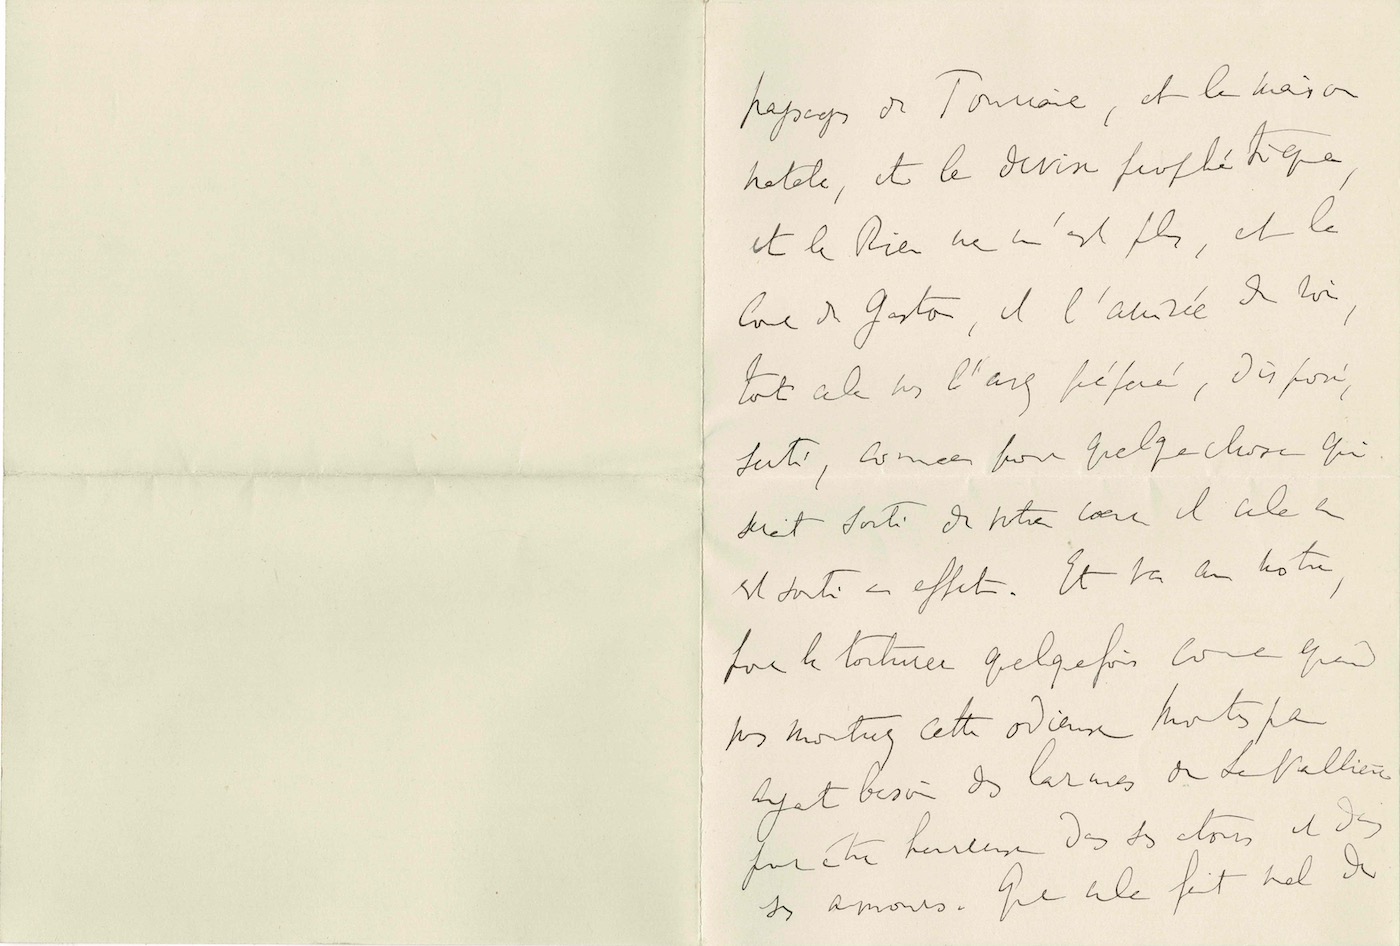 paysages de Touraine, et la maison
natale, et la devise prophétique,
et le Rien ne m'est plus, et la
Cour de Gaston, et l'arrivée du roi,
tout cela vous l'avez préparé, disposé,
serti, comme pour quelque chose qui
serait sorti de votre cœur et cela en
est sorti en effet. Et va au nôtre,
pour le torturer quelquefois comme quand
vous montrez cette odieuse Montespan
ayant besoin des larmes de La Vallière
pour être heureuse dans ses atours et dans
ses amours. Que cela fait mal de